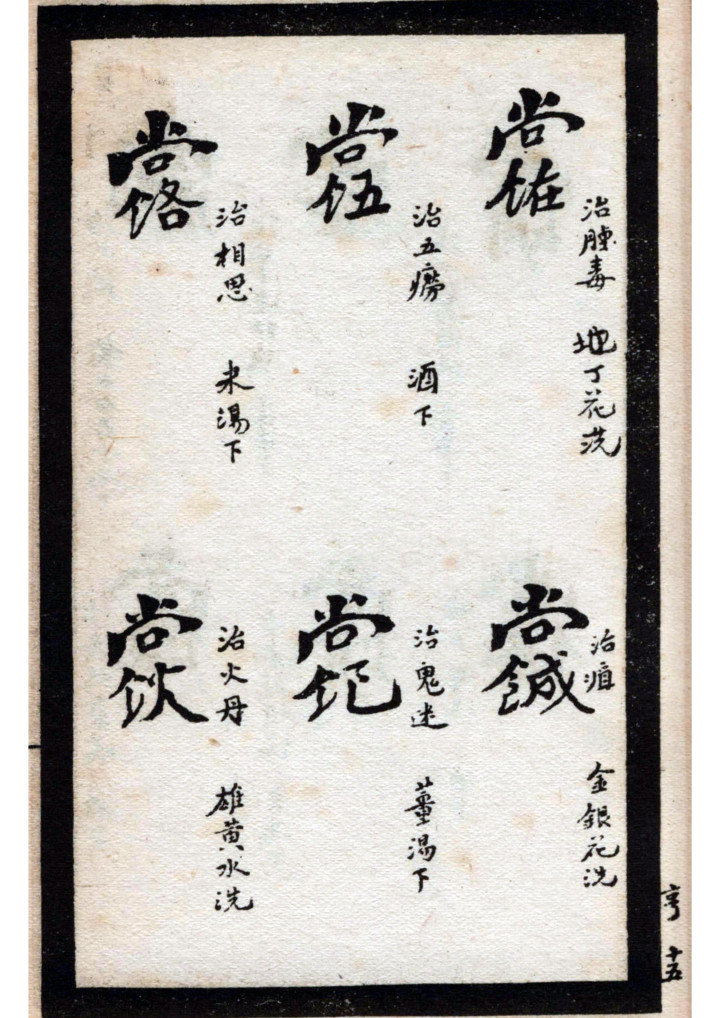 治腫毒 地丁花洗
治五癆 酒下
治相思 米湯下
治疽 金銀花洗
治鬼迷 薑湯下
治火丹 雄黃水洗
亨 十五